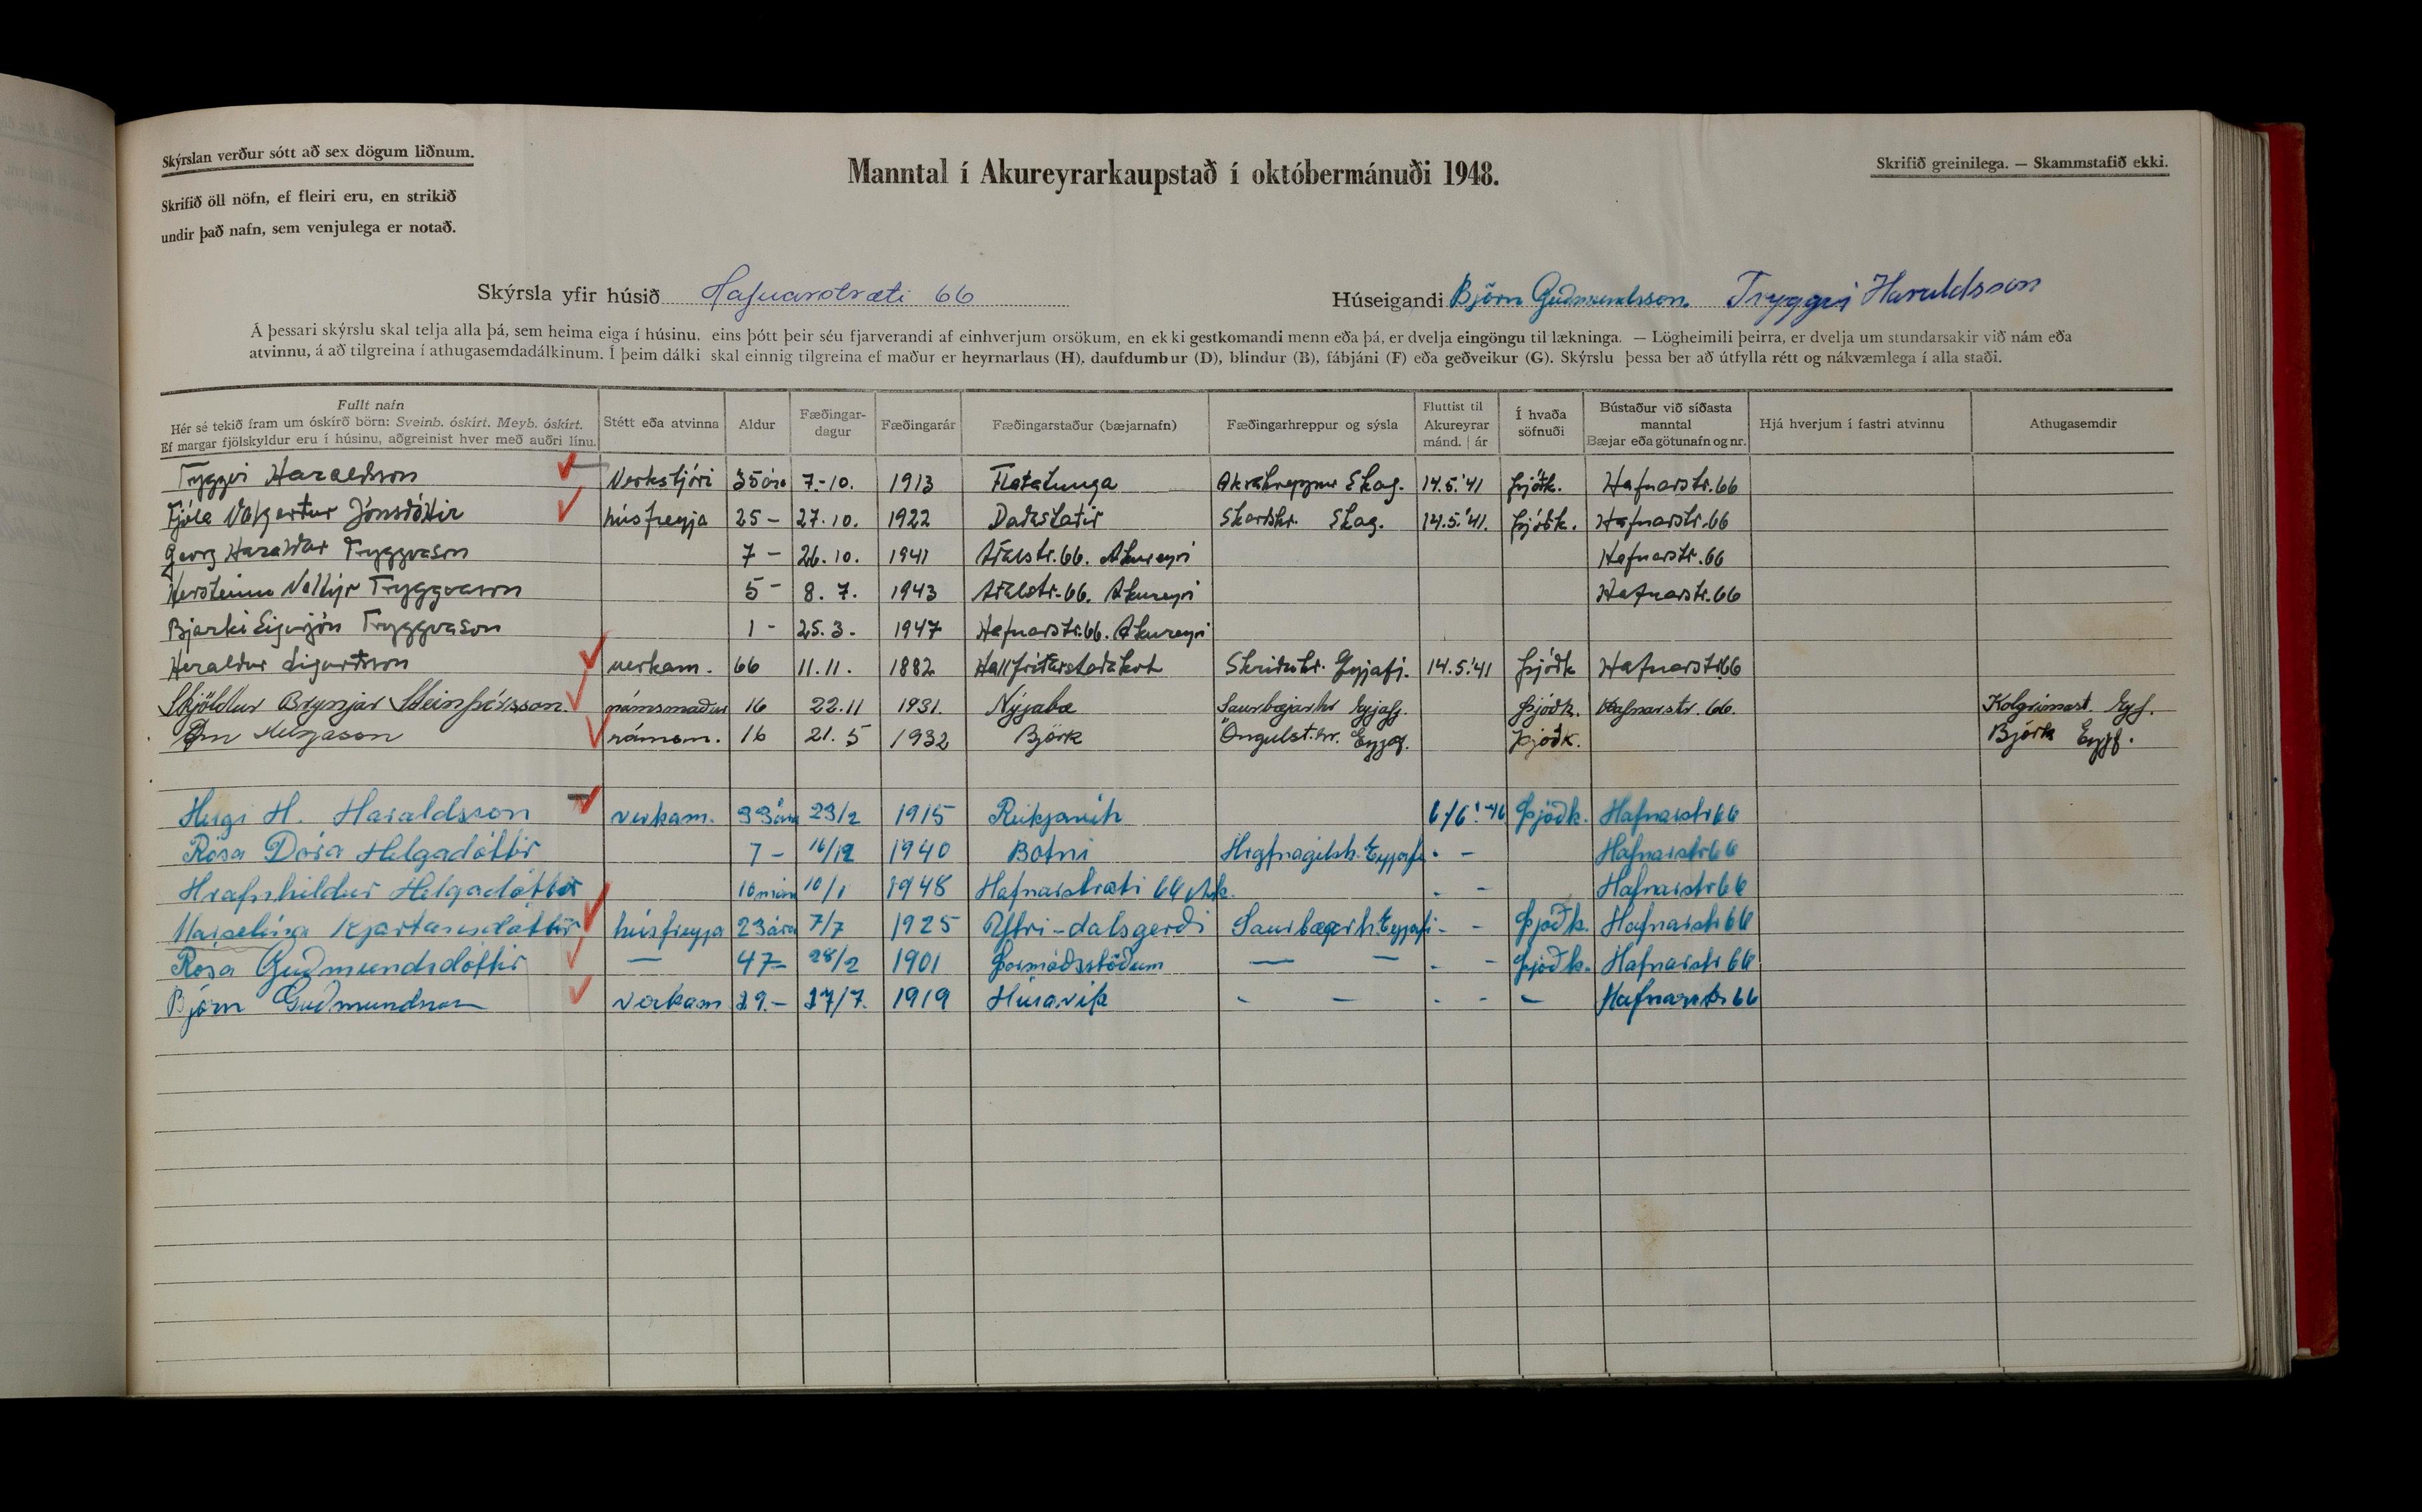 Skýrslan verður sótt að sex dögum liðnum.
Skrifið öll nöfn, ef fleiri eru, en strikið
undir það nafn, sem venjulega er notað.
Manntal í Akureyrarkaupstað í októbermánuði 1948.
Skrifið greinilega. — Skammstafið ekki.
Skýrsla yfir húsið Hafnarstræti 66
Húseigandi Björn Guðmundsson. Tryggvi Haraldsson
Á þessari skýrslu skal telja alla þá, sem heima eiga í húsinu, eins þótt þeir séu fjarverandi af einhverjum orsökum, en ekki gestkomandi menn eða þá, er dvelja eingöngu til lækninga. — Lögheimili þeirra, er dvelja um stundarsakir við nám eða
atvinnu, á að tilgreina í athugasemdadálkinum. Í þeim dálki skal einnig tilgreina ef maður er heyrnarlaus (H), daufdumbur (D), blindur (B), fábjáni (F) eða geðveikur (G). Skýrslu þessa ber að útfylla rétt og nákvæmlega í alla staði.
Fullt nafn
Hér sé tekið fram um óskírð börn: Sveinb. óskírt. Meyb. óskírt.
Ef margar fjölskyldur eru í húsinu, aðgreinist hver með auðri línu.
Stétt eða atvinna
Aldur
Fæðingar-
dagur
Fæðingarár
Fæðingarstaður (bæjarnafn)
Fæðingarhreppur og sýsla
Fluttist til
Akureyrar
mánd. | ár
Í hvaða
söfnuði
Bústaður við síðasta
manntal
Bæjar eða götunafn og nr.
Hjá hverjum í fastri atvinnu
Athugasemdir
Tryggvi Haraldsson Verkstjóri 35 ára 7.-10. 1913 Flatatunga Akrahreppur Skag. 14.5.'41 þjóðk. Hafnarstr. 66
Fjóla Valgerður Jónsdóttir húsfreyja 25 - 27.10. 1922 Daðastaðir Skarðshr. Skag. 14.5.'41. þjóðk. Hafnarstr. 66
Georg Haraldur Tryggvason 7 - 26.10. 1941 Aðalstr. 66. Akureyri Hafnarstr. 66
Hersteinn Tryggvason 5 - 8. 7. 1943 Aðalstr. 66. Akureyri Hafnarstr. 66
Bjarki Sigurjón Tryggvason 1 - 25.3. 1947 Hafnarstr. 66. Akureyri
Haraldur Sigurðsson verkam. 66 11.11. 1882 Hallfríðarstaðakot Skriðuhr. Eyjafj. 14.5.'41 þjóðk Hafnarstr 66
Skjöldur Brynjar Steinþórsson. námsmaður 16 22.11 1931. Nýjabæ Saurbæjarhr Eyjafj. Þjóðk. Hafnarstr. 66. Kolgrímast. Eyf.
Örn Helgason námsm. 16 21. 5 1932 Björk Öngulst.hr. Eyjaf. Þjóðk. Björk Eyjf.
Helgi H. Haraldsson verkam. 33 ára 23/2 1915 Reikjavík 6/6 '46 Þjóðk. Hafnarstr 66
Rósa Dóra Helgadóttir 7 - 16/12 1940 Botni Hrafnagilsh. Eyjafj - - Hafnarstr 66
Hrafnhildur Helgadóttir 10 mán 10/1 1948 Hafnarstræti 66 Ak. - - Hafnarstr 66
Marselína Kjartansdóttir húsfreyja 23 ára 7/7 1925 Ytri-dalsgerði Saurbæjarh. Eyjafj - - Þjóðk. Hafnarstr 66
Rósa Guðmundsdóttir — 47 - 28/2 1901 Þormóðsstöðum — — - - þjóðk. Hafnarstr 66
Björn Guðmundsson verkam 29.- 17/7. 1919 Húsavík - — - - — Hafnarstr 66